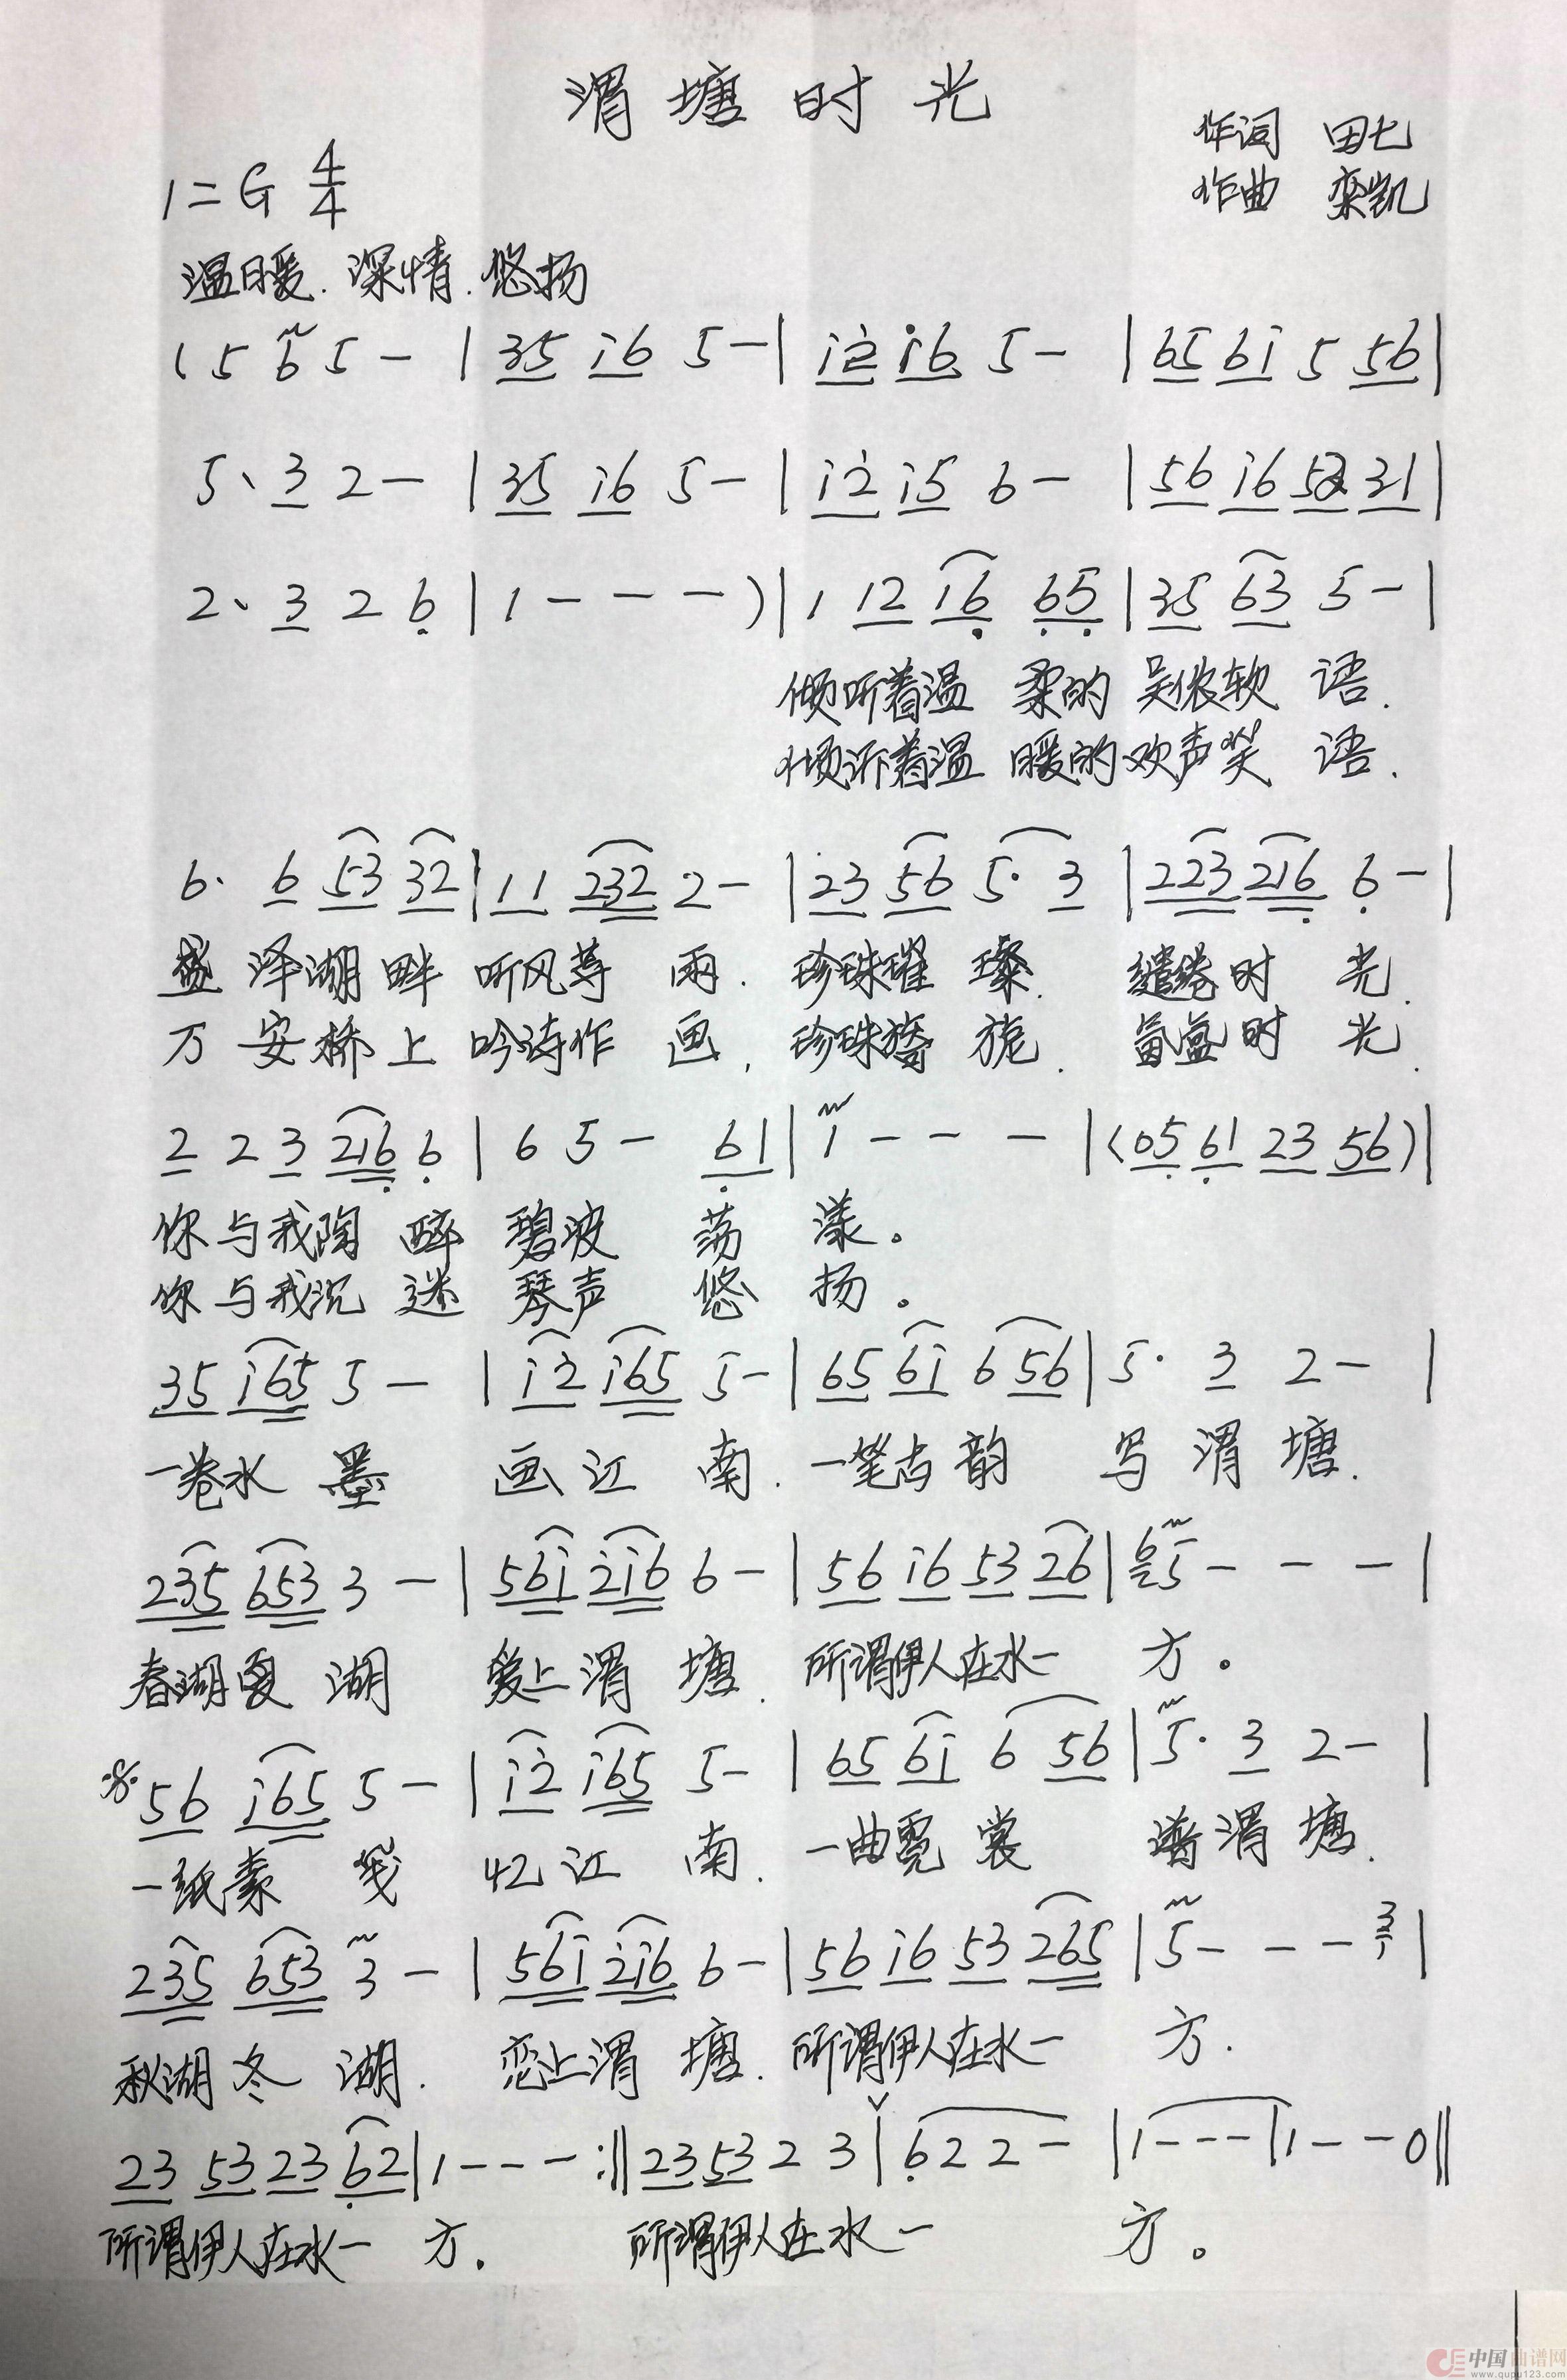 渭塘时光
作词 田七
1=G 4/4
作曲 栾凯
温暖.深情.悠扬
(5 6 5 - | 35 i6 5 - | i2 i6 5 - | 65 6i 5 56 |
5、3 2 - | 35 i6 5 - | i2 i5 6 - | 56 i6 53 31 |
2、3 2 6 | 1 - - - ) | 1 12 16 65 | 35 63 5 - |
倾听着温 柔的 吴侬软 语.
倾诉着温 暖的 欢声笑 语.
6· 6 53 32 | 11 232 2 - | 23 56 5· 3 | 223 216 6 - |
盛 泽湖畔 听风等 雨. 珍珠璀 璨. 缱绻时 光.
万 安桥上 吟诗作 画, 珍珠旖 旎. 氤氲时 光.
2 2 3 216 6 | 6 5 - 61 | 1 - - - | (05 61 23 56) |
你与我陶 醉 碧波 荡 漾。
你与我沉 迷 琴声 悠 扬。
35 i65 5 - | i2 i65 5 - | 65 6i 6 56 | 5· 3 2 - |
一卷水 墨 画江 南. 一笔古韵 写渭塘.
235 653 3 - | 56i 2i6 6 - | 56 i6 53 26 | 6 5 - - - |
春湖夏 湖 爱上渭 塘. 所谓伊人在水一 方。
56 i65 5 - | i2 i65 5 - | 65 6i 6 56 | 5· 3 2 - |
一纸素 笺 忆江 南. 一曲霓裳 谱渭塘.
235 653 3 - | 56i 2i6 6 - | 56 i6 53 265 | 5 - - - 3 1 |
秋湖冬 湖. 恋上渭 塘. 所谓伊人在水一 方.
23 53 23 62 | 1 - - - :‖ 23 53 2 3 | 6 2 2 - | 1 - - - | 1 - - 0 ‖
所谓伊人在水一 方. 所谓伊人在水一 方。
中国曲谱网
www.qupu123.com